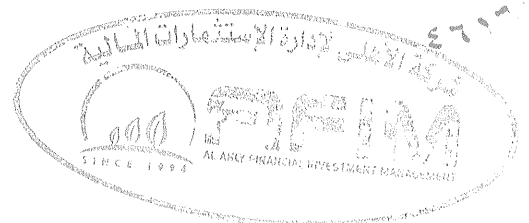 شركة الأهلي لإدارة الإستثمارات المالية
AFIM
SINCE 1994
AL AHLY FINANCIAL INVESTMENT MANAGEMENT